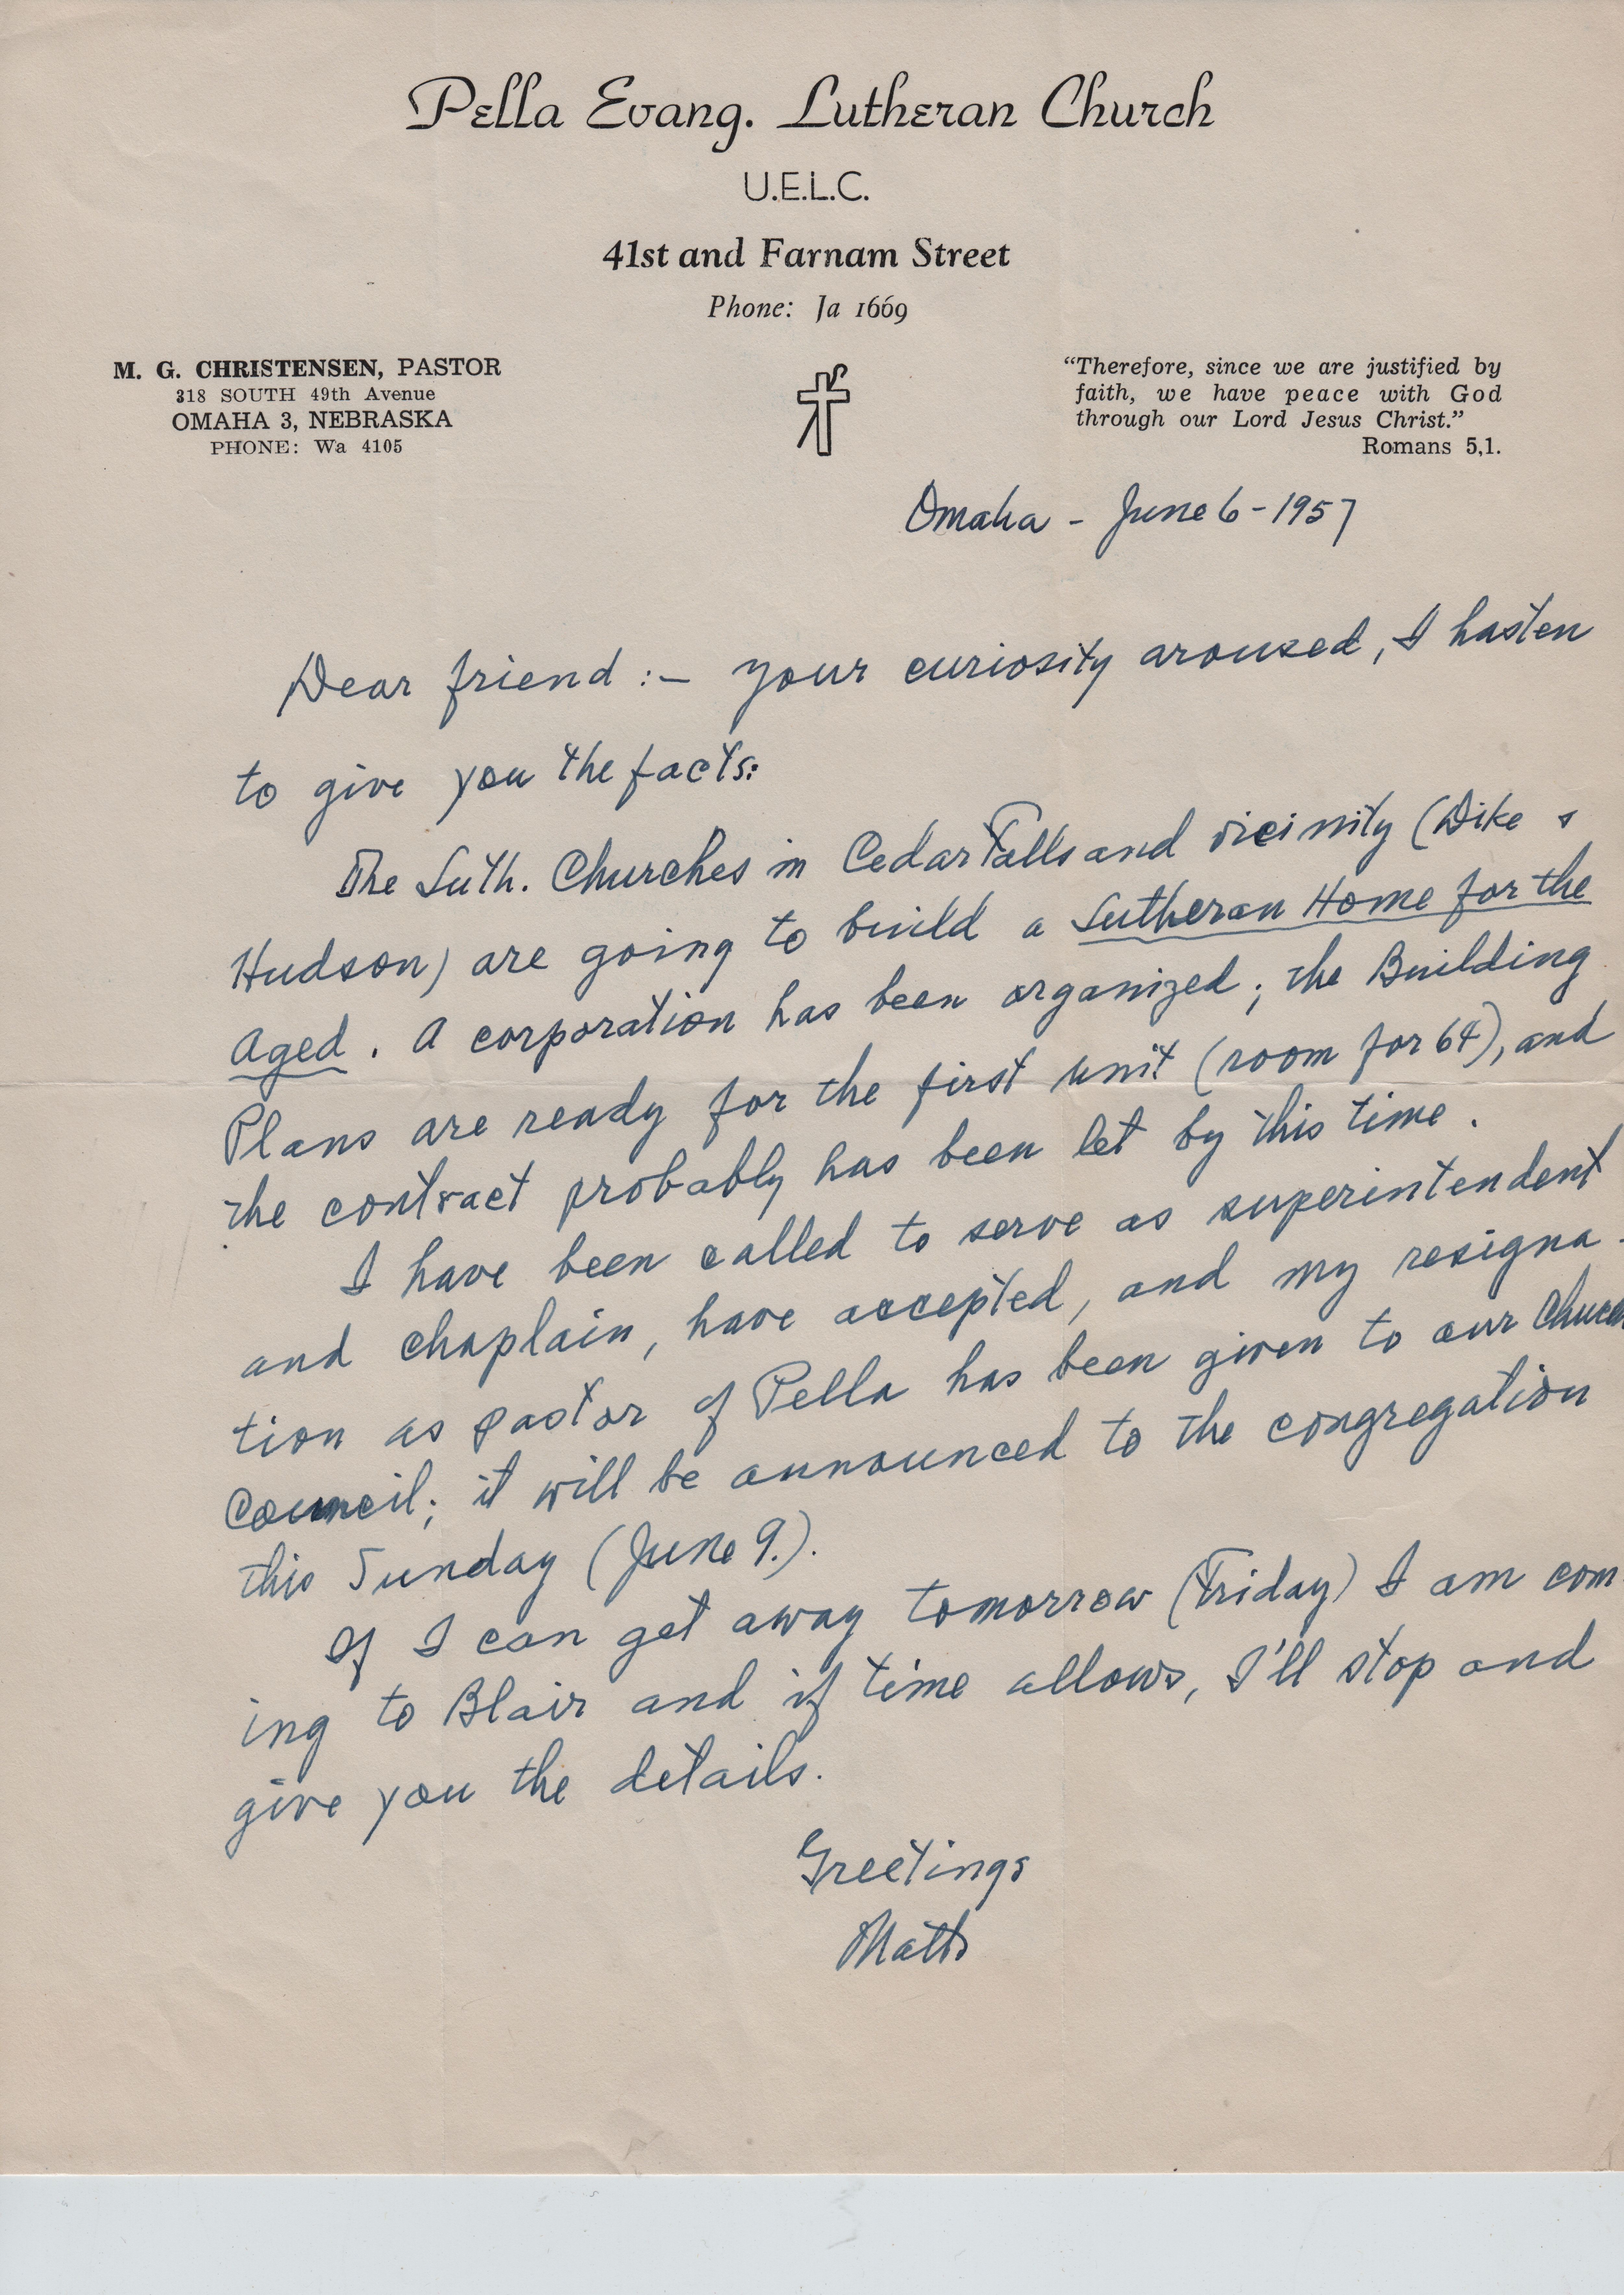 Pella Evang. Lutheran Church
U.E.L.C.
41st and Farnam Street
Phone: Ja 1669
M. G. CHRISTENSEN, PASTOR
318 SOUTH 49th Avenue
OMAHA 3, NEBRASKA
PHONE: Wa 4105
"Therefore, since we are justified by
faith, we have peace with God
through our Lord Jesus Christ."
Romans 5,1.
Omaha - June 6 - 1957
Dear friend :- your curiosity aroused, I hasten
to give you the facts:
The Luth. Churches in Cedar Falls and vicinity (Dike &
Hudson) are going to build a Lutheran Home for the
Aged. A corporation has been organized; the Building
Plans are ready for the first unit (room for 64), and
the contract probably has been let by this time.
I have been called to serve as superintendent
and chaplain, have accepted, and my resigna-
tion as pastor of Pella has been given to our Church
Council; it will be announced to the congregation
this Sunday (June 9.).
If I can get away tomorrow (Friday) I am com
ing to Blair and if time allows, I'll stop and
give you the details.
Greetings
Matts